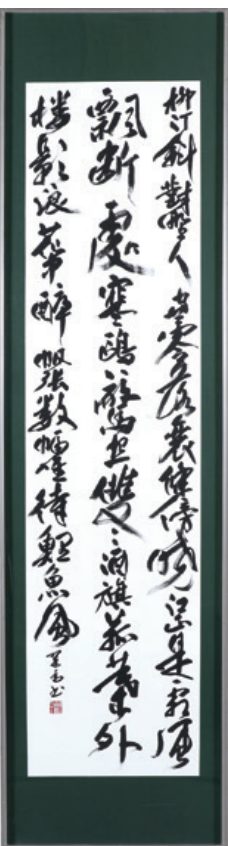 柳汀斜對野人窗零落衰條傍曉江正是霜風
飄斷處寒鷗驚起一雙々酒旗菰葉外
樓影浪花中醉帆張數幅唯待鯉魚風